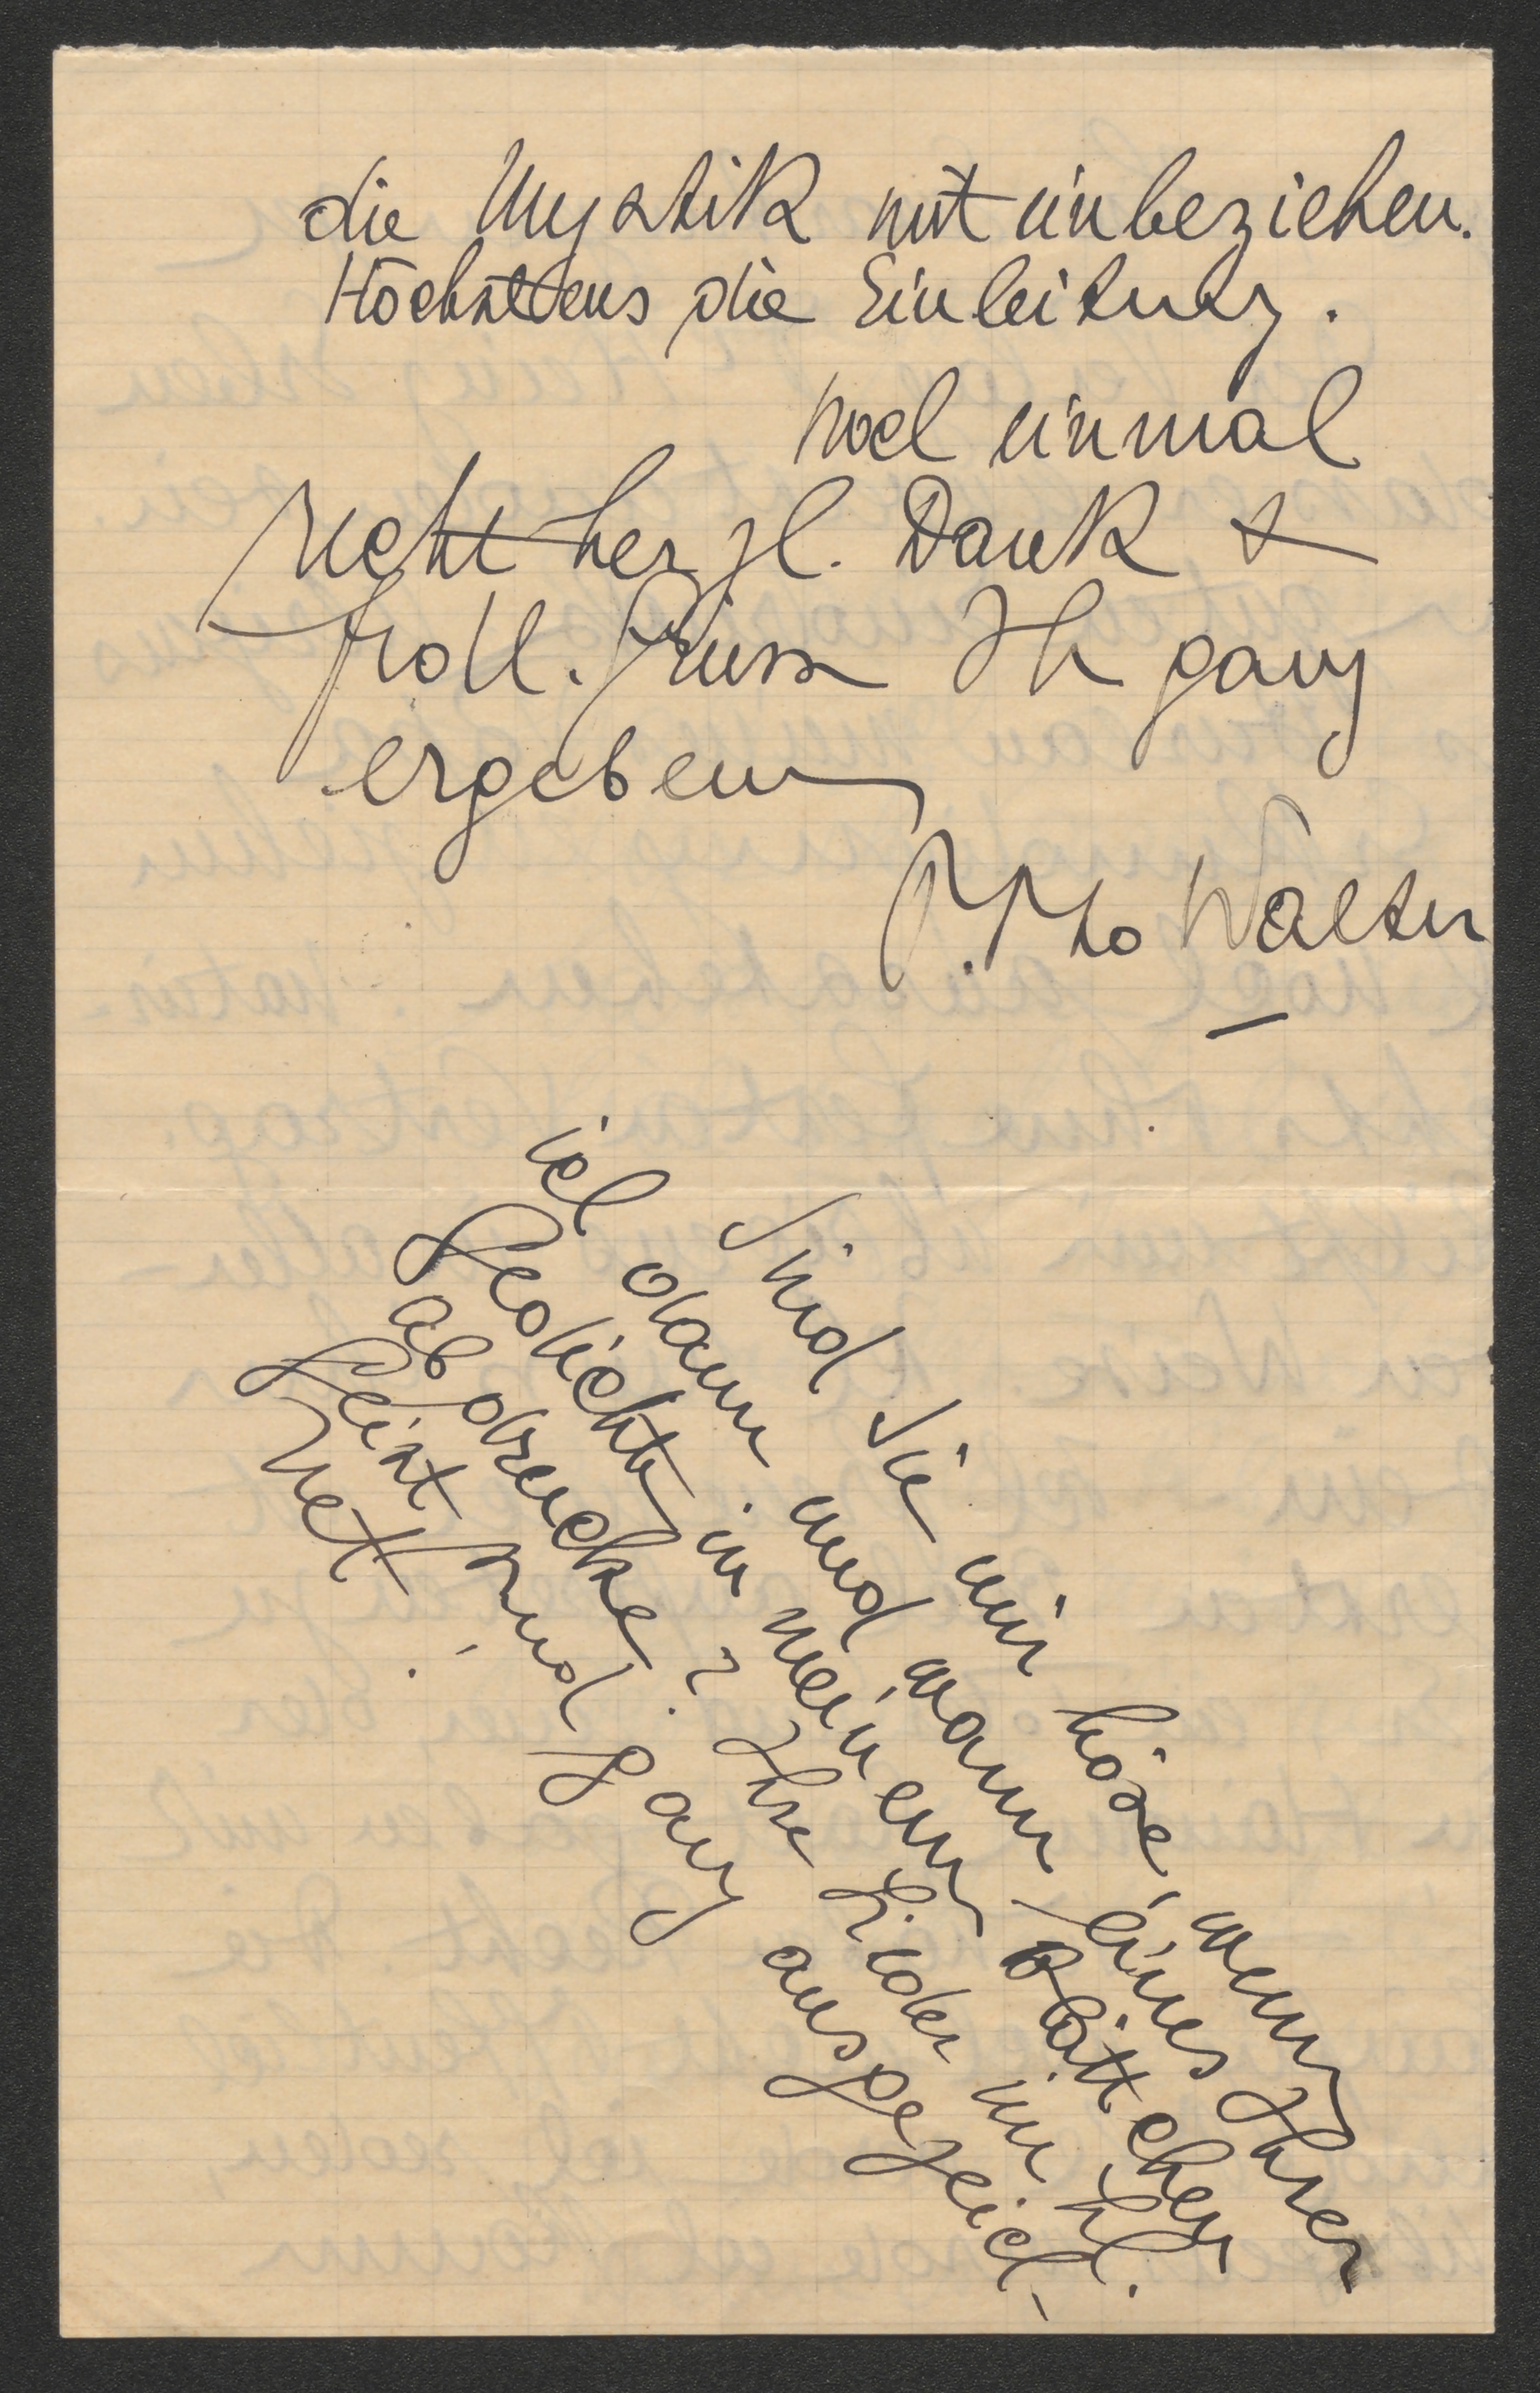 die Mystik mit einbeziehen.
Höchstens die Einleitung.
Noch einmal
recht herzl. Dank &
frdl. Gruss Ihr ganz
ergebener
P. Otto Walter
Sind Sie mir böse, wenn
ich dann und wann eines Ihrer
Gedichte in meinem Blättchen
abdrucke? Ihre Lieder im hl.
Geist sind ganz ausgezeich-
net!